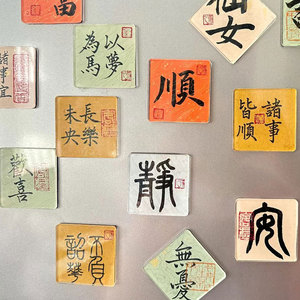 仙女
以夢
為馬
諸事宜
順
長樂
未央
諸事
皆順
歡喜
靜
安
不負
韶華
無憂